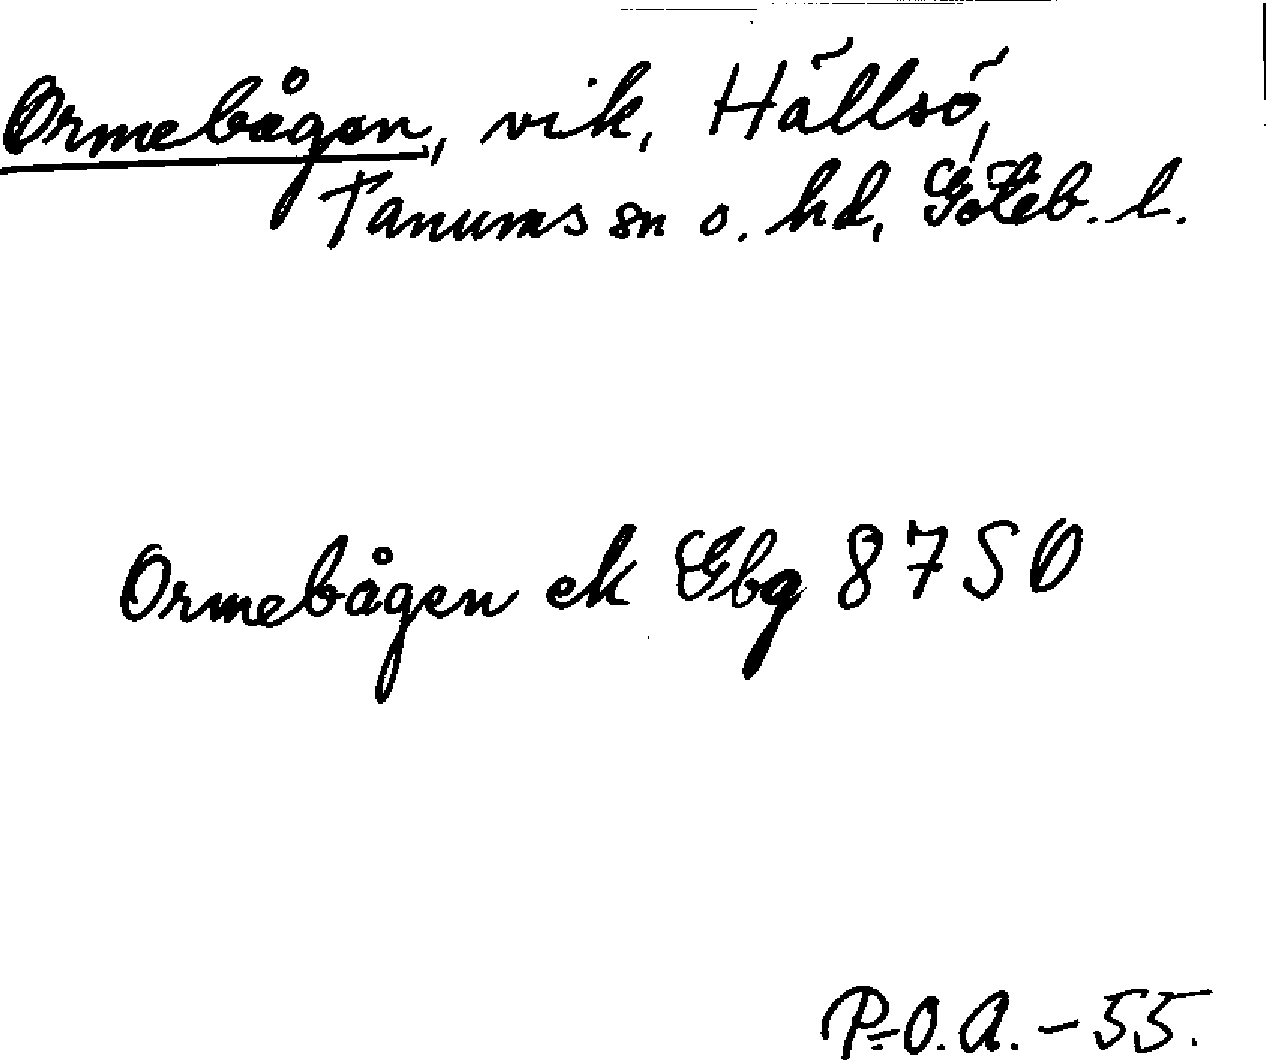 Ormebågen, vik, Hällsö,
Tanums sn o. hd, Göteb. l.
Ormebågen ek Gbg 8750
P-O.A. -55.